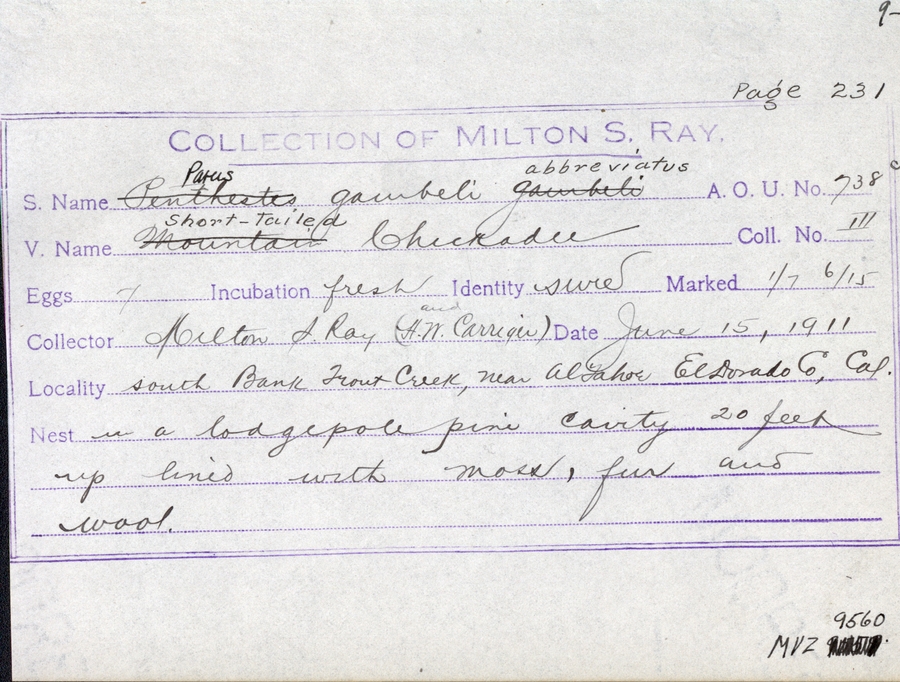 9-
Page 231
COLLECTION OF MILTON S. RAY.
Parus abbreviatus
S. Name Penthestes gambeli gambeli A. O. U. No. 738 c
Short-tailed
V. Name Mountain Chickadee Coll. No. III
Eggs 7 Incubation fresh Identity sure Marked 1/7 6/15
and
Collector Milton S. Ray (H.W. Carriger) Date June 15, 1911
Locality south Bank Trout Creek, near Al Tahoe El Dorado Co, Cal.
Nest in a lodgepole pine cavity 20 feet
up lined with moss, fur and
wool.
9560
MVZ